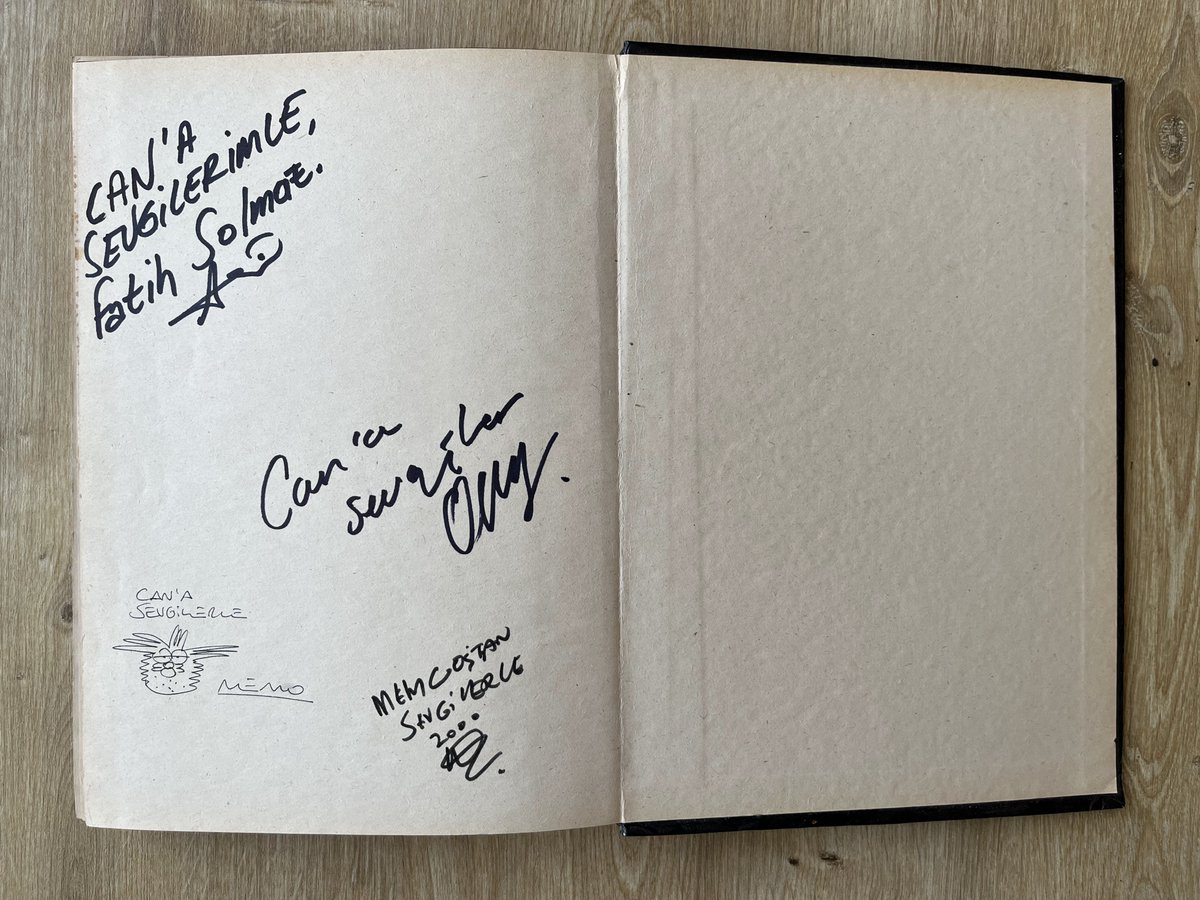 CAN'A
SEVGİLERİMLE,
Fatih Solmaz.
Can'a
sevgiler
CAN'A
SEVGİLERLE
MEMO
SEVGİLERLE
2000